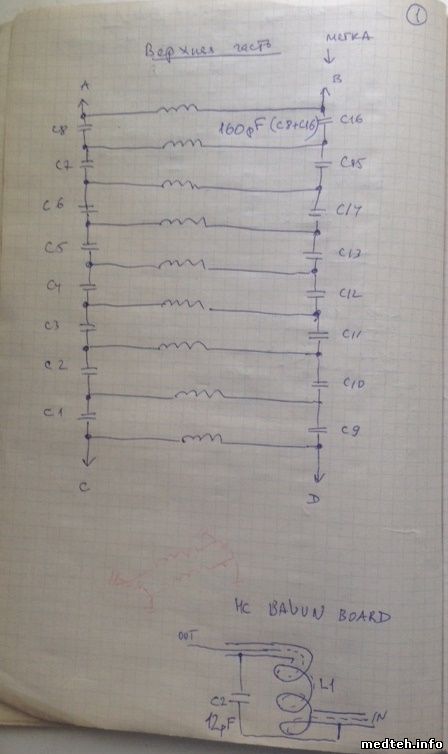 1
Верхняя часть
МЕТКА
A
B
C8
160pF (C8+C16)
C16
C7
C15
C6
C14
C5
C13
C4
C12
C3
C11
C2
C10
C1
C9
C
D
HC BALUN BOARD
OUT
L1
C2
12pF
IN
medteh.info